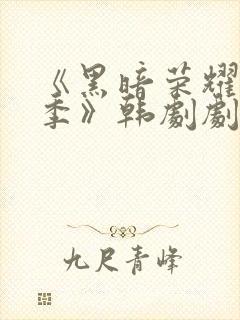 《黑暗荣耀
季》韩剧剧
九尺青峰